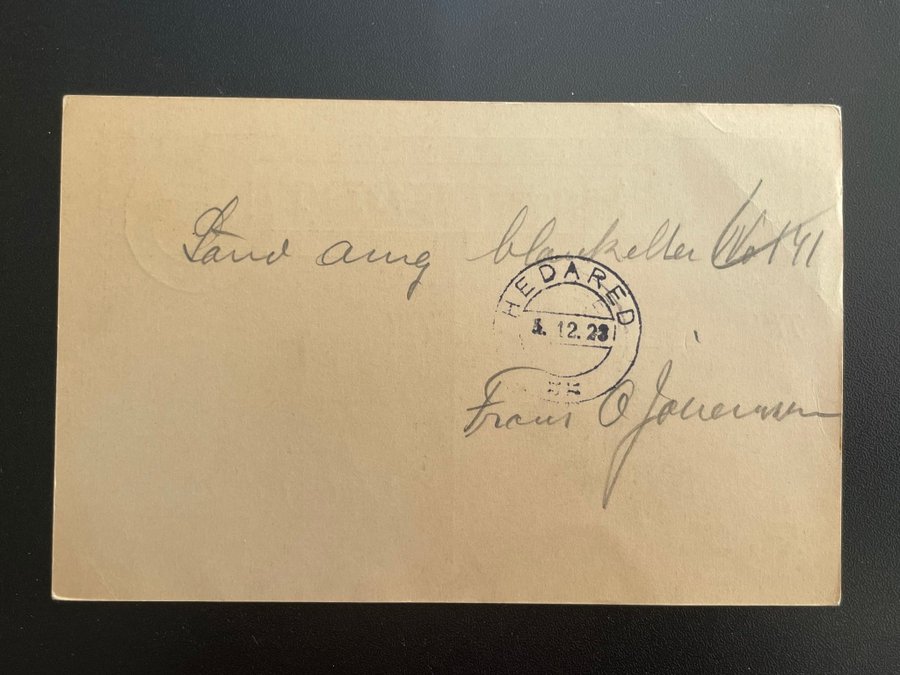 Sänd omg blanketter No 141
HEDARED
5. 12. 23
Frans O Johansson